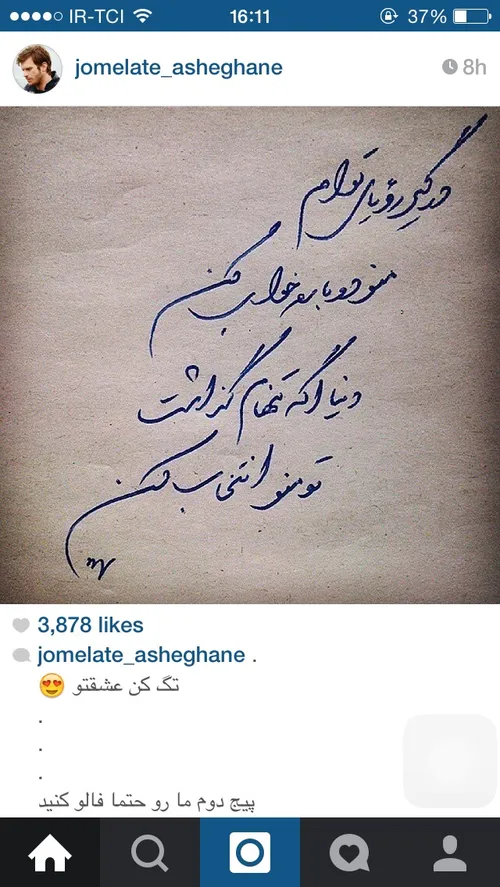 IR-TCI 16:11 37%
jomelate_asheghane 8h
درگیر رؤیای توام
منو دوباره خواب کن
دنیا اگه تنهام گذاشت
تو منو انتخاب کن
3,878 likes
jomelate_asheghane .
تگ کن عشقتو 😍
.
.
.
پیج دوم ما رو حتما فالو کنید